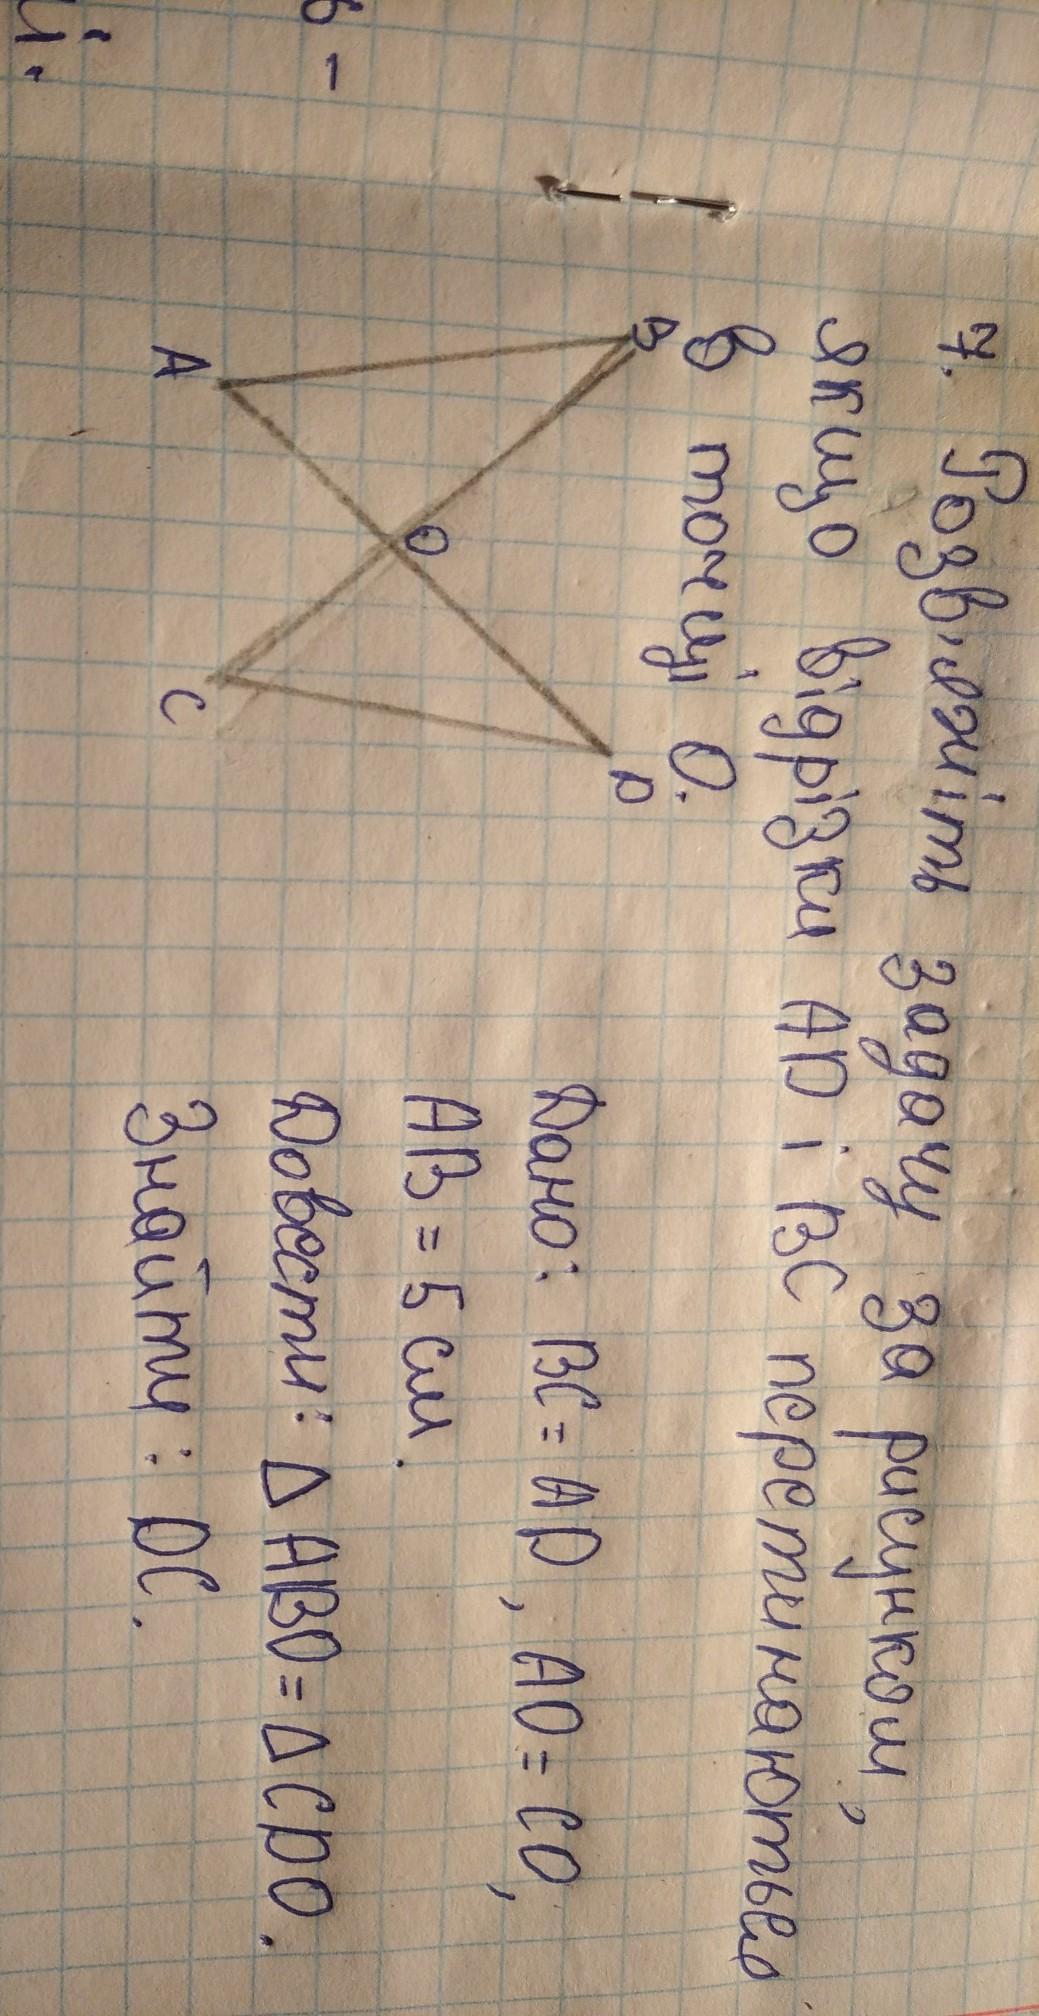 в -
й.
7. Розв'яжіть задачу за рисунком,
якщо відрізки AD і BC перетинаються
в точці О.
B
D
O
A
C
Дано: BC = AD, AO = CO,
AB = 5 см.
Довести: Δ ABO = Δ CDO.
Знайти: DC.